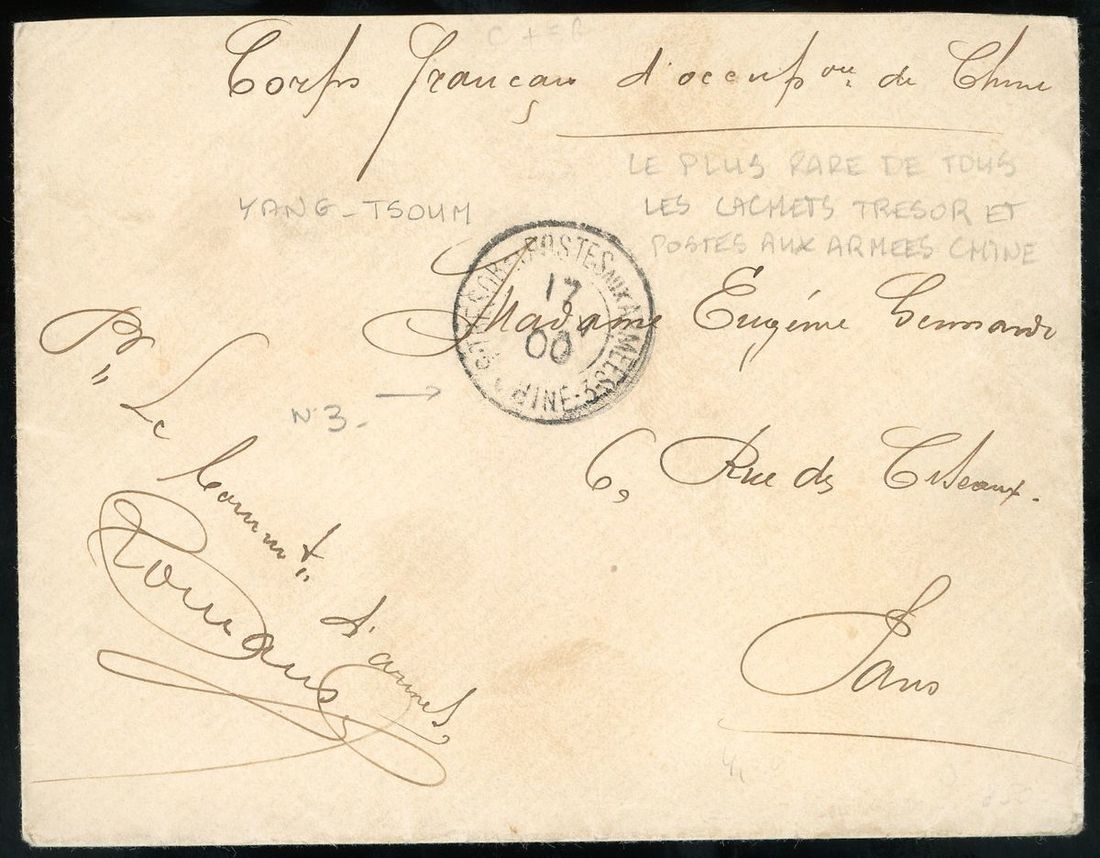 Corps français d'occupon de Chine
LE PLUS RARE DE TOUS
LES CACHETS TRESOR ET
POSTES AUX ARMEES CHINE
YANG-TSOUM
TRESOR ET POSTES AUX ARMEES
17
00
CHINE-3
N3-
Madame Eugénie
6, Rue des Ciseaux.
Paris
Pr Le Commt d'armes,